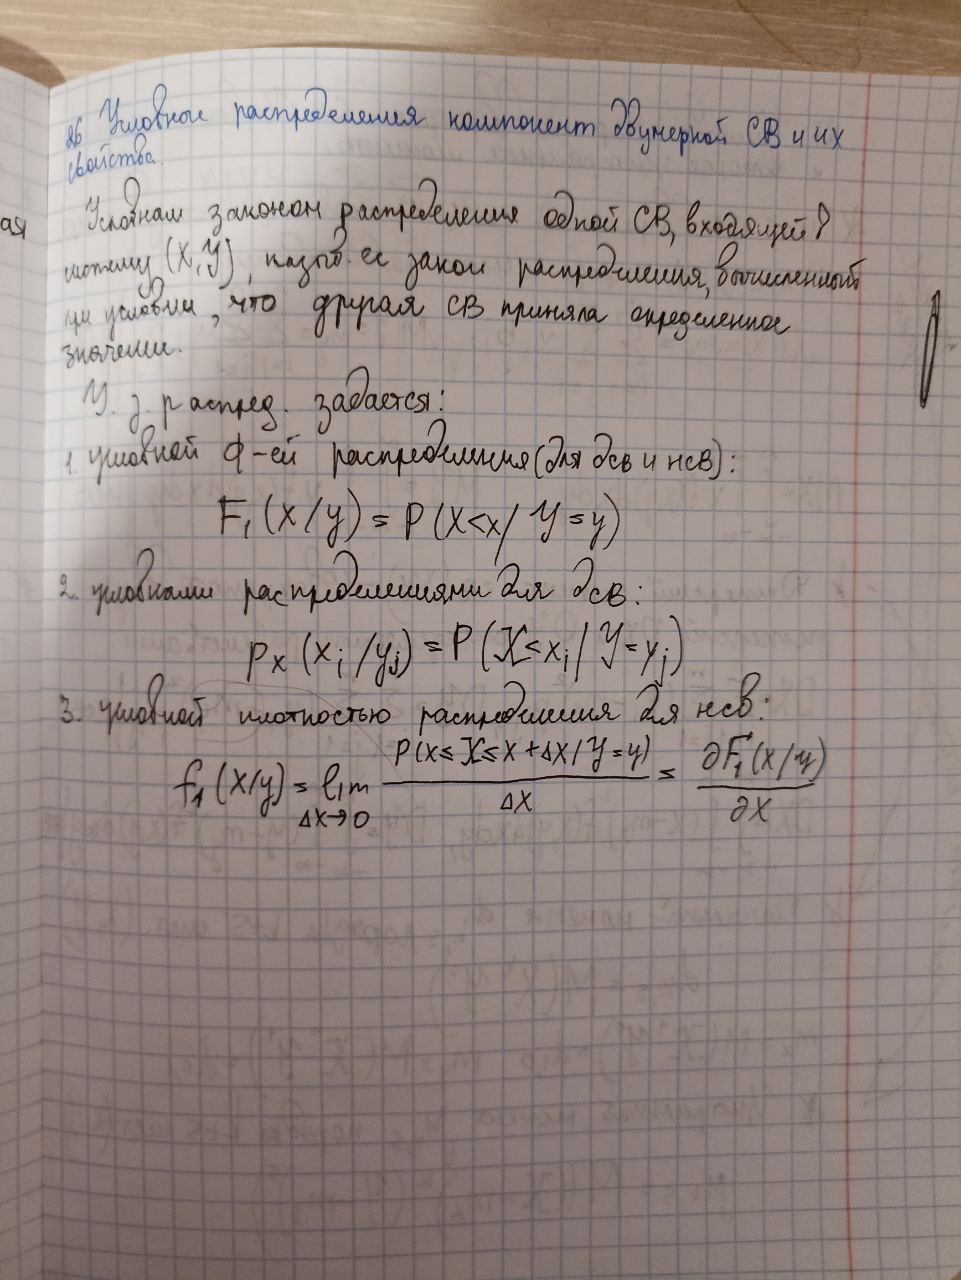 26 Условные распределения компонент двумерной СВ и их
свойства.
ая
Условным законом распределения одной СВ, входящей в
систему (X,Y), назыв. ее закон распределения, вычисленный
при условии, что другая СВ приняла определенное
значение.
У. з. распред. задается:
1. условной ф-ей распределения (для дсв и нсв):
F₁(x/y) = P(X<x/Y=y)
2. условными распределениями для дсв:
pₓ(xᵢ/yⱼ) = P(X<xᵢ/Y=yⱼ)
3. условной плотностью распределения для нсв:
f₁(x/y) = lim_{Δx→0} P(x≤X≤x+Δx/Y=y)/Δx = ∂F₁(x/y)/∂x